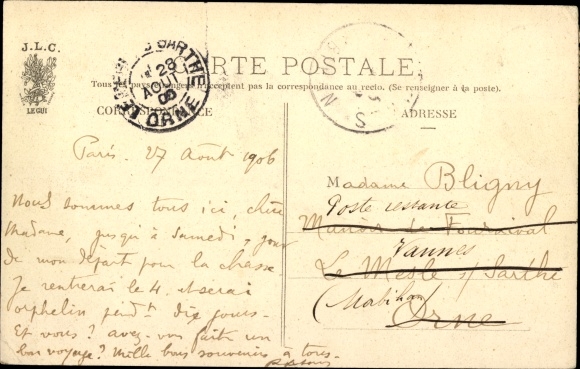 J.L.C.
LE GUI
CARTE POSTALE
Tous les pays étrangers n'acceptent pas la correspondance au recto. (Se renseigner à la poste).
CORRESPONDANCE
ADRESSE
SARTHE
28
AOUT
ORNE
Paris. 27 Août 1906
Nous sommes tous ici, chère
Madame, jusqu'à Samedi, jour
de mon départ pour la chasse
Je rentrerai le 4. et serai
orphelin pendt dix jours.
Et vous? avez-vous fait un
bon voyage? Mille bons souvenirs à tous.
Madame Bligny
Poste restante
Manoir de
Vannes
Le Mesle s/ Sarthe
(Morbihan)
Orne